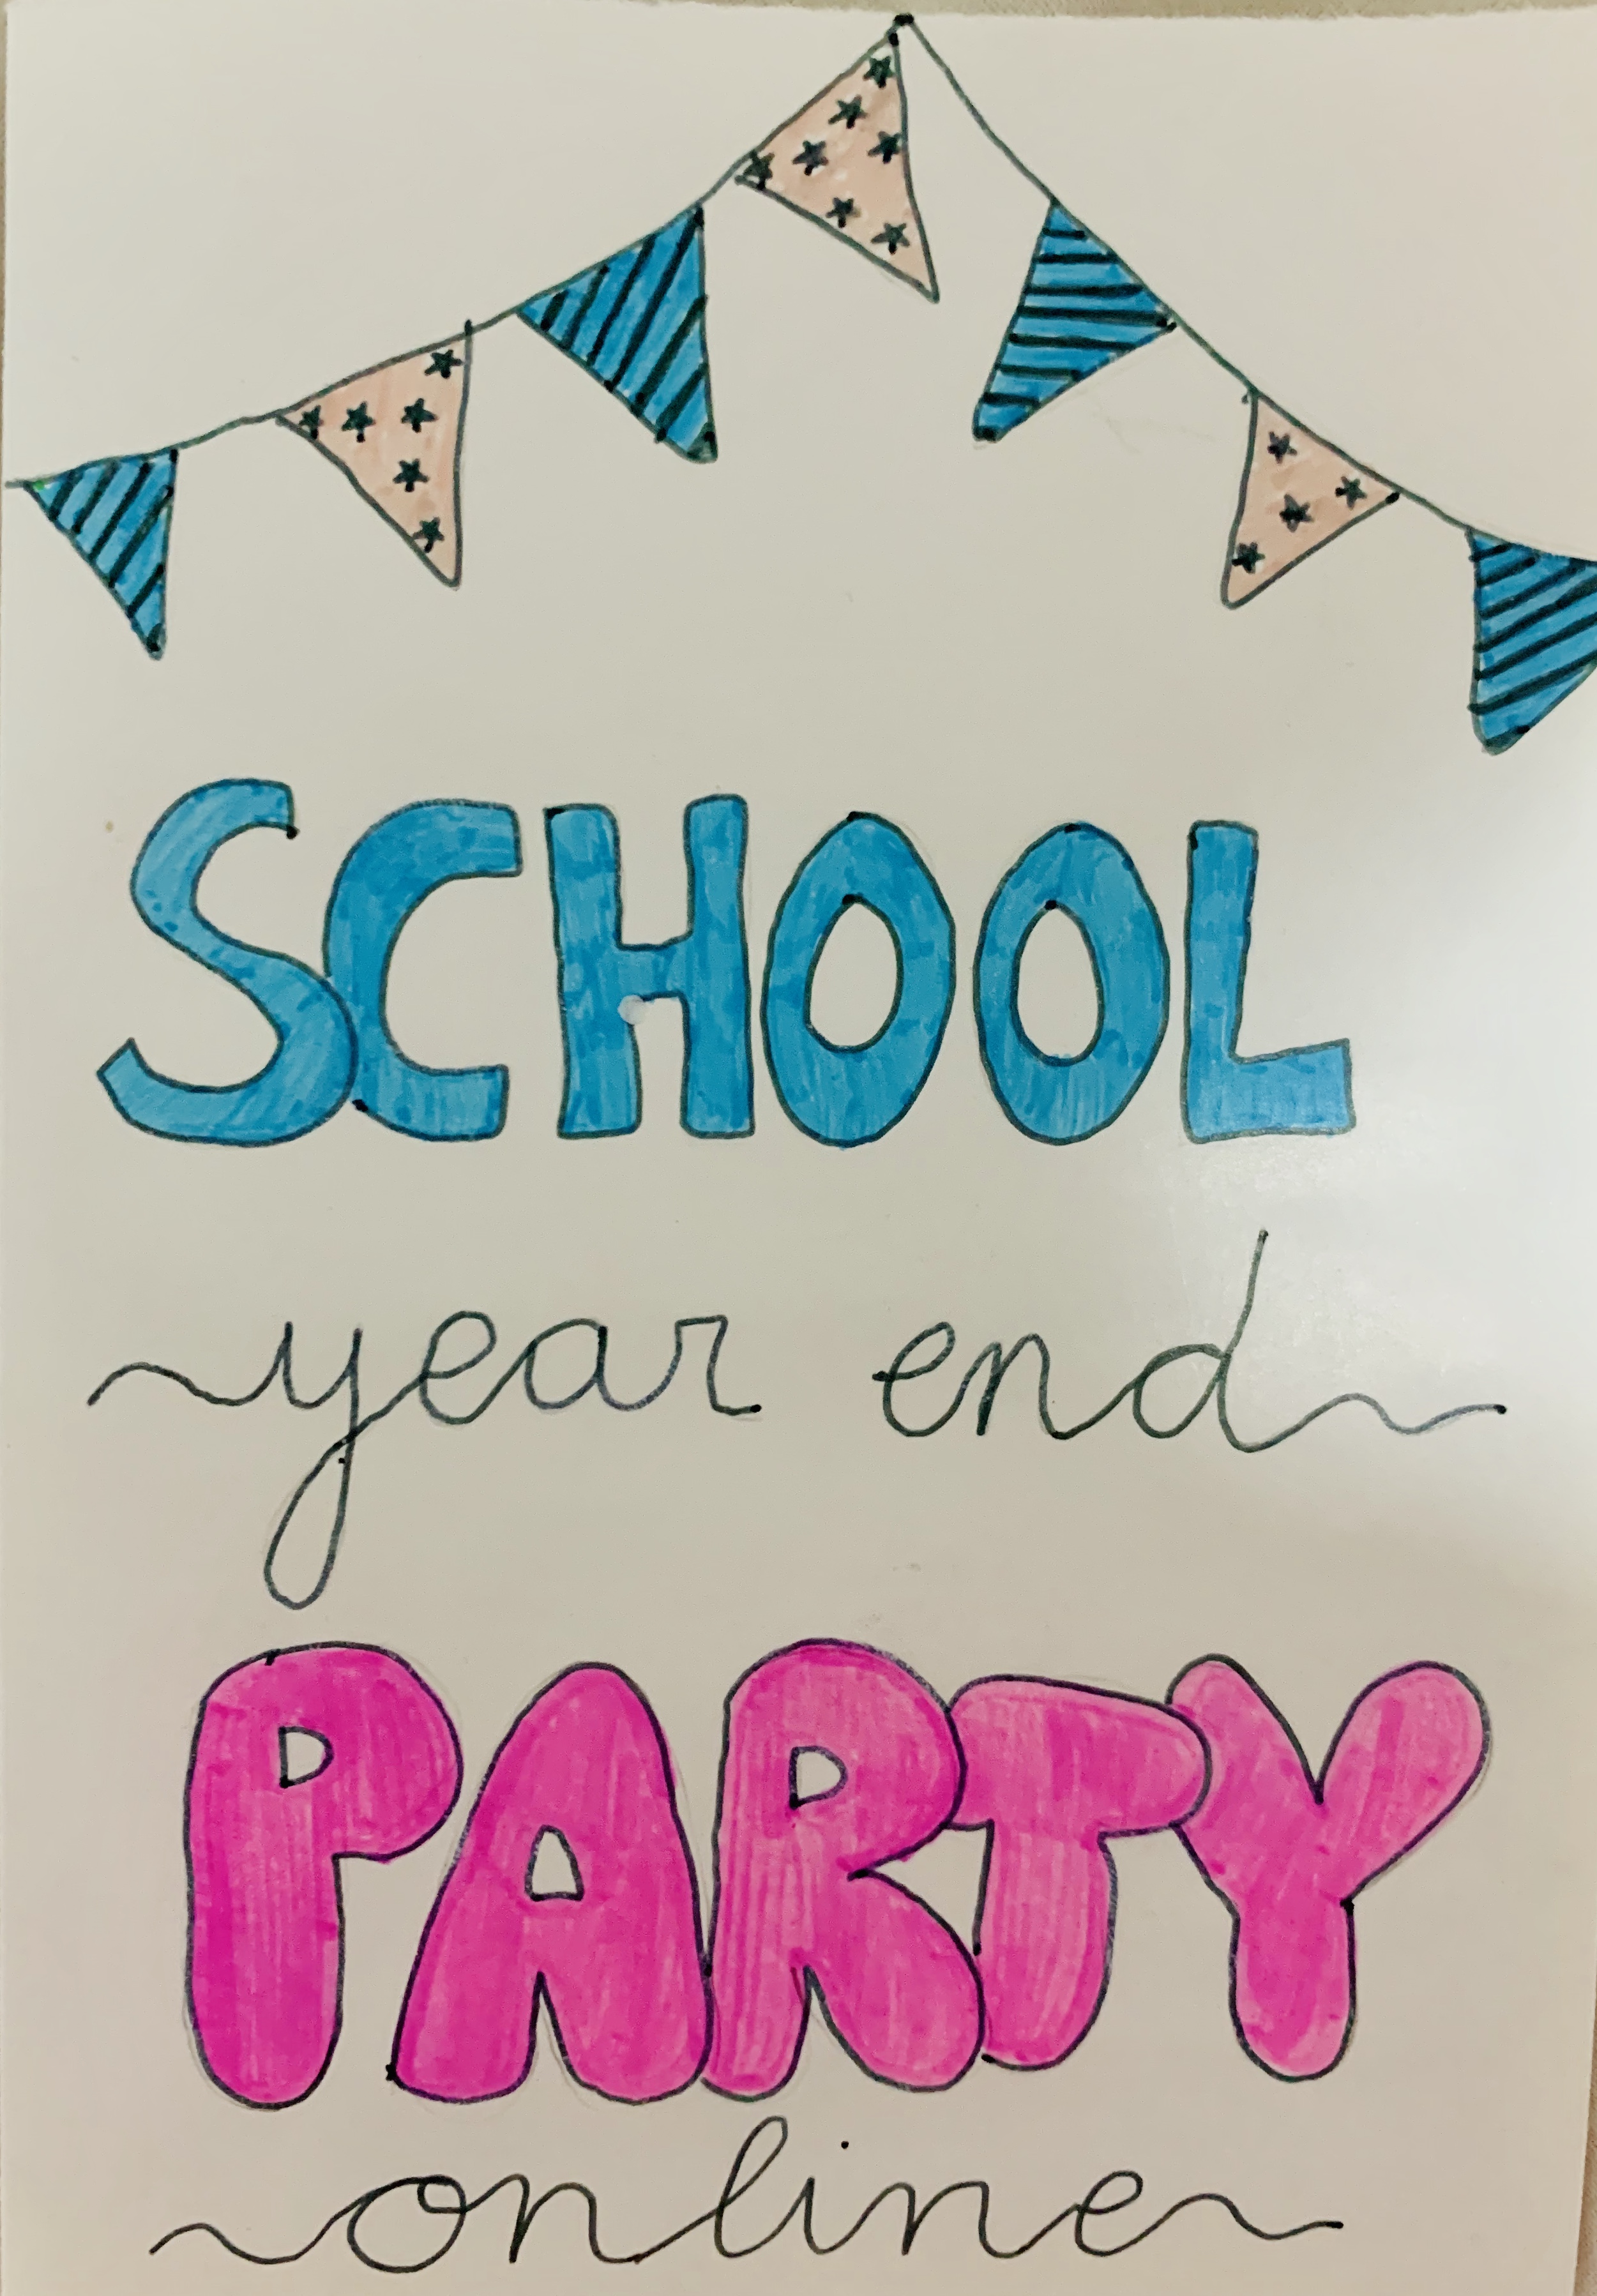 SCHOOL
year end
PARTY
online